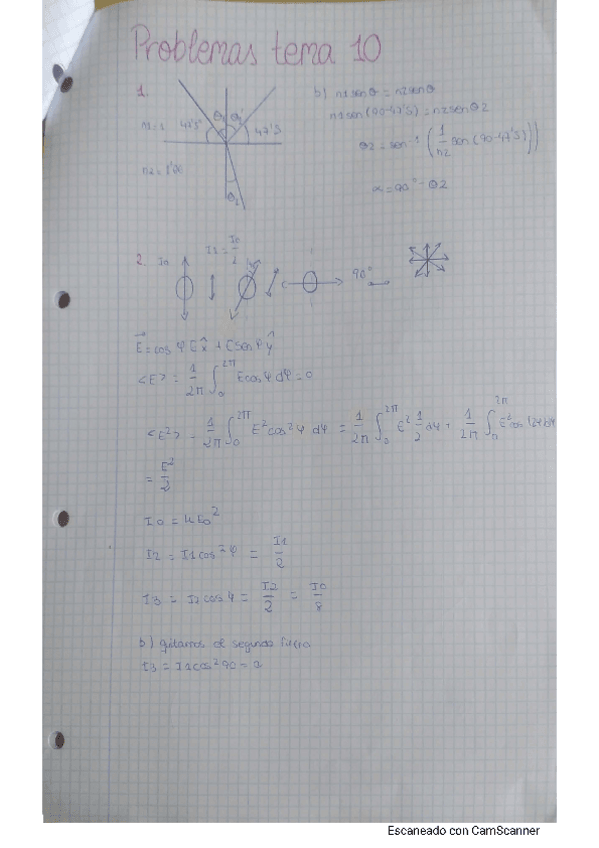 Problemas tema 10
1.
n1=1
47'5°
θ1
θ1'
47'5
n2=1'90
θ2
b) n1 senθ = n2 senθ
n1 sen(90-47'5) = n2 senθ2
θ2 = sen⁻¹ (1/n2 sen(90-47'5))
α = 90° - θ2
2.
I0
I1 = I0/2
90°
E⃗ = cos φ E x̂ + E sen φ ŷ
<E> = 1/2π ∫₀^2π E cos φ dφ = 0
<E²> = 1/2π ∫₀^2π E² cos² φ dφ = 1/2π ∫₀^2π E² 1/2 dφ + 1/2π ∫₀^2π E² cos (2φ) dφ
= E²/2
I0 = k E0²
I2 = I1 cos² φ = I1/2
I3 = I2 cos φ = I2/2 = I0/8
b) quitamos el segundo filtro
I3 = I1 cos² 90 =
Escaneado con CamScanner